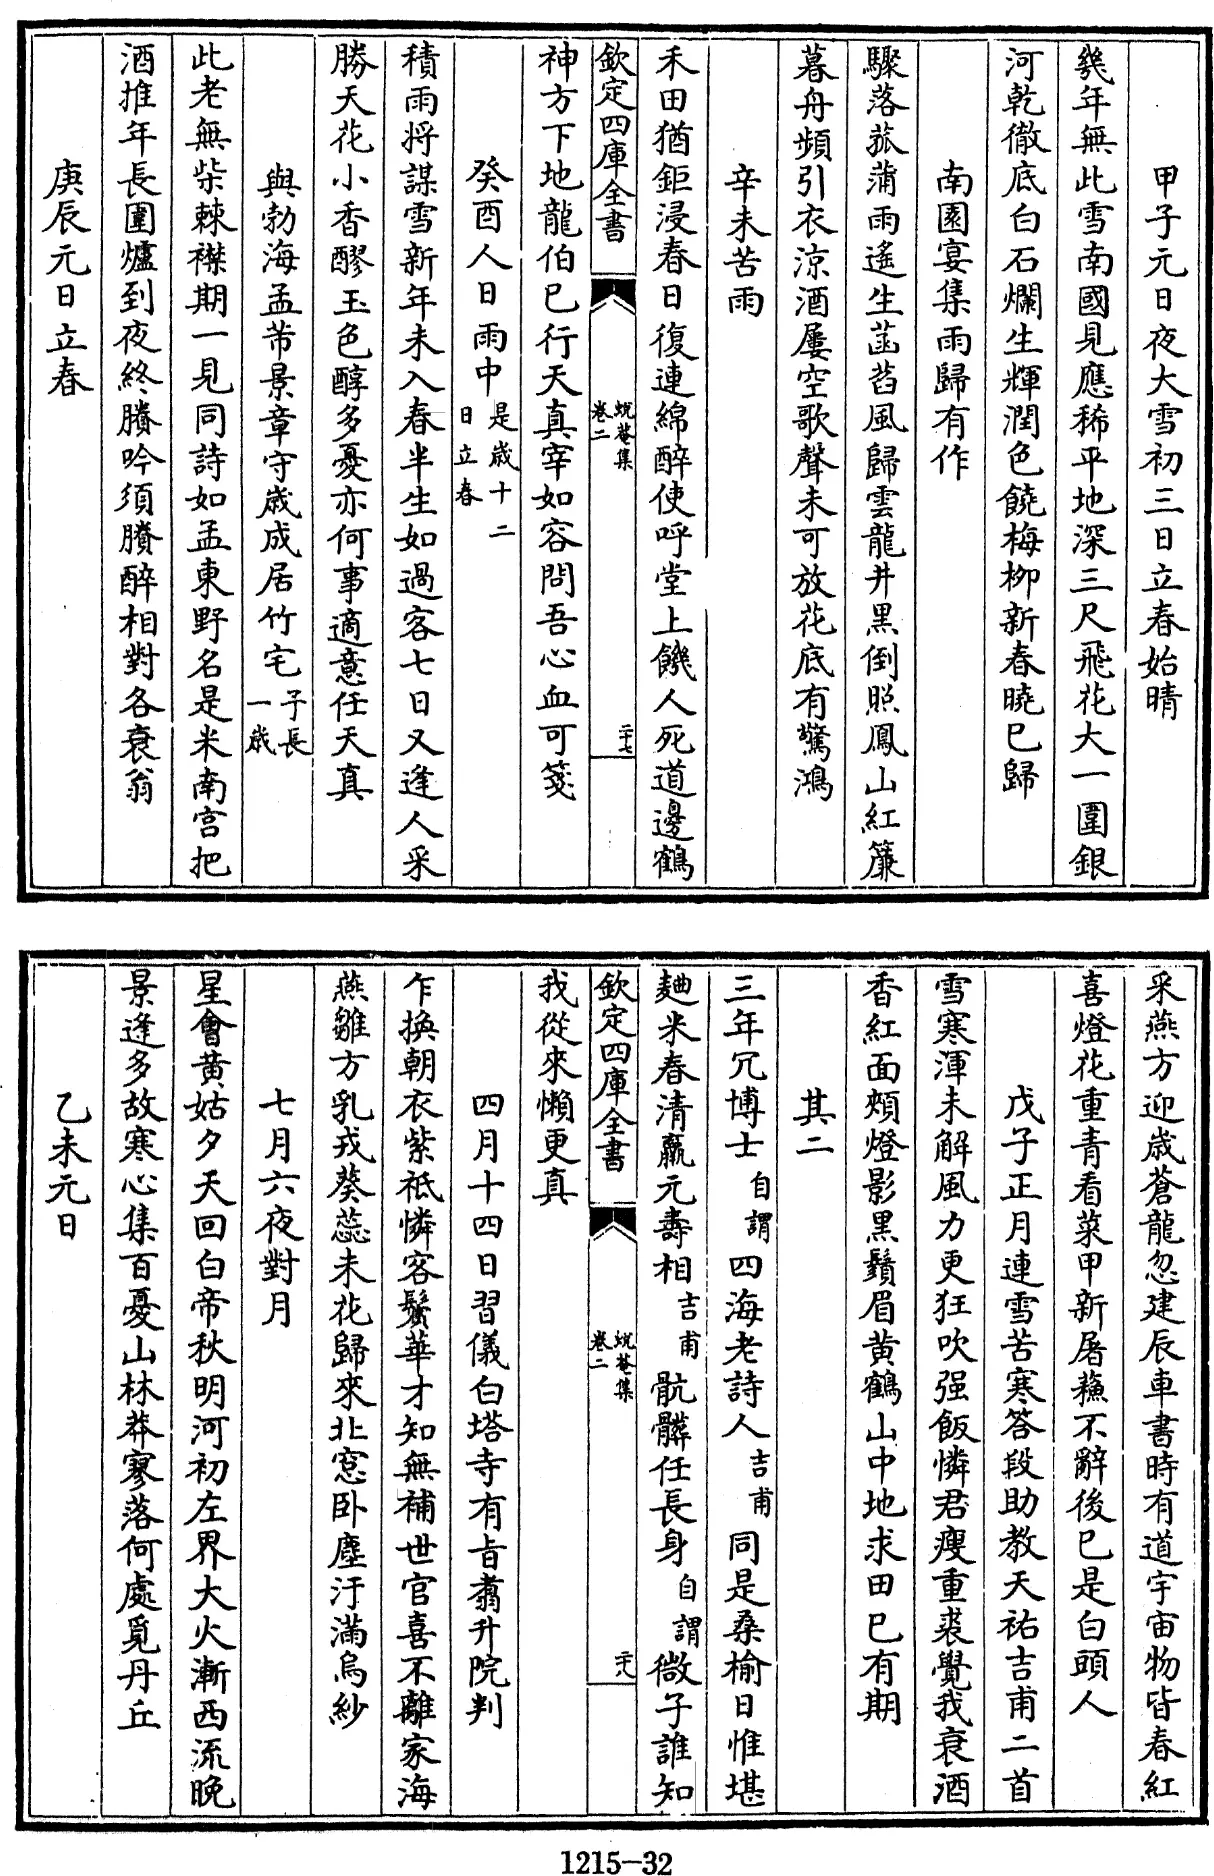 甲子元日夜大雪初三日立春始晴
幾年無此雪南國見應稀平地深三尺飛花大一圍銀
河乾徹底白石爛生輝潤色饒梅柳新春曉已歸
南園宴集雨歸有作
驟落菰蒲雨遙生菡萏風歸雲龍井黑倒照鳳山紅簾
暮舟頻引衣涼酒屢空歌聲未可放花底有驚鴻
辛未苦雨
禾田猶鉅浸春日復連綿醉使呼堂上饑人死道邊鶴
欽定四庫全書
蛻菴集
卷二
二十七
神方下地龍伯已行天真宰如容問吾心血可箋
癸酉人日雨中是歲十二
日立春
積雨將謀雪新年未入春半生如過客七日又逢人采
勝天花小香醪玉色醇多憂亦何事適意任天真
與勃海孟芾景章守歲成居竹宅子長
一歲
此老無柴棘襟期一見同詩如孟東野名是米南宮把
酒推年長圍爐到夜終賸吟須賸醉相對各衰翁
庚辰元日立春
采燕方迎歲蒼龍忽建辰車書時有道宇宙物皆春紅
喜燈花重青看菜甲新屠蘓不辭後已是白頭人
戊子正月連雪苦寒答段助教天祐吉甫二首
雪寒渾未解風力更狂吹强飯憐君瘦重裘覺我衰酒
香紅面頰燈影黑鬚眉黄鶴山中地求田已有期
其二
三年冗博士自謂四海老詩人吉甫同是桑榆日惟堪
麯米春清羸元壽相吉甫骯髒任長身自謂微子誰知
欽定四庫全書
蛻菴集
卷二
二十八
我從來懶更真
四月十四日習儀白塔寺有旨翥升院判
乍換朝衣紫祗憐客鬢華才知無補世官喜不離家海
燕雛方乳戎葵蕊未花歸來北窓卧塵汙滿烏紗
七月六夜對月
星會黄姑夕天回白帝秋明河初左界大火漸西流晚
景逢多故寒心集百憂山林莽寥落何處覓丹丘
乙未元日
1215-32